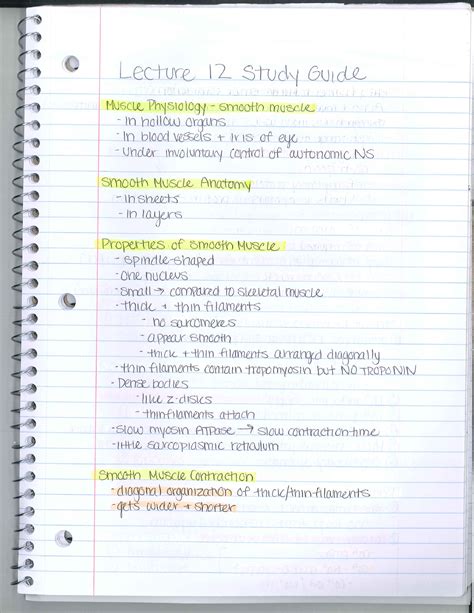 Lecture 12 Study Guide
Muscle Physiology - smooth muscle
- in hollow organs
- in blood vessels + iris of eye
- under involuntary control of autonomic NS
Smooth Muscle Anatomy
- in sheets
- in layers
Properties of Smooth Muscle
- spindle-shaped
- one nucleus
- small → compared to skeletal muscle
- thick + thin filaments
- no sarcomeres
- appear smooth
- thick + thin filaments arranged diagonally
- thin filaments contain tropomyosin but NO TROPONIN
- Dense bodies
- like z-discs
- thin filaments attach
- slow myosin ATPase → slow contraction-time
- little sarcoplasmic reticulum
Smooth Muscle Contraction
- diagonal organization of thick/thin filaments
- gets wider + shorter